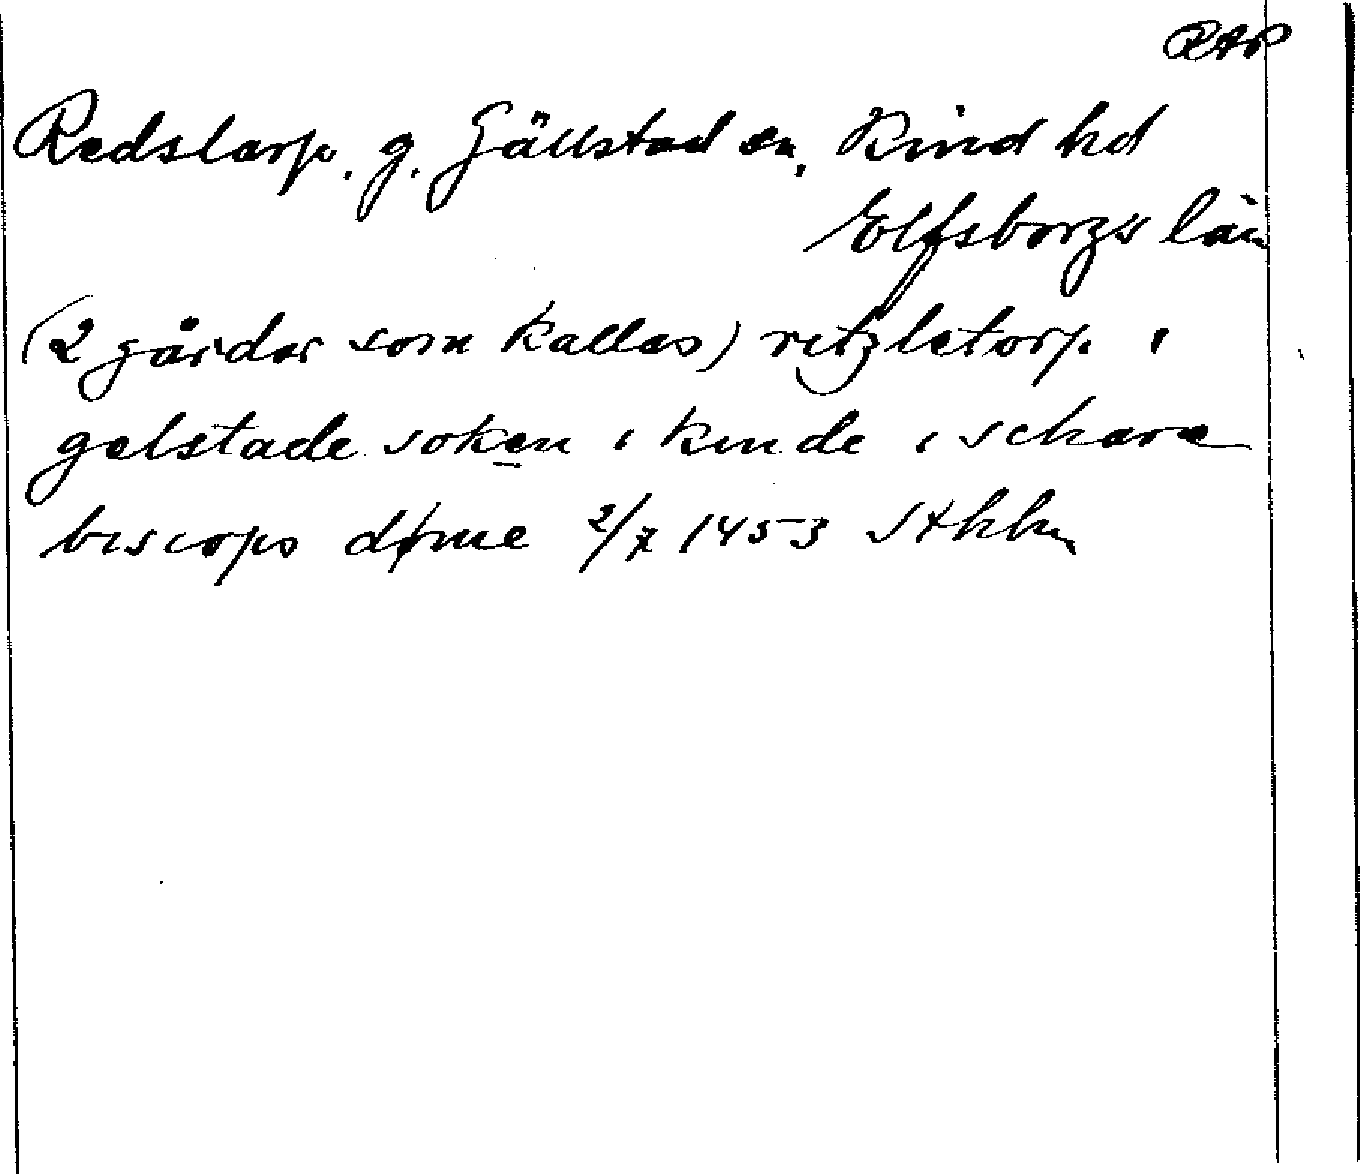 RAP
Redslarp. g. Gällstad sn, Kind hd
Elfsborgs län
(2 gårdar som kallas) retzletorp i
gelstade soken i kinde i schara
biscops døme 2/7 1453 Sthlm